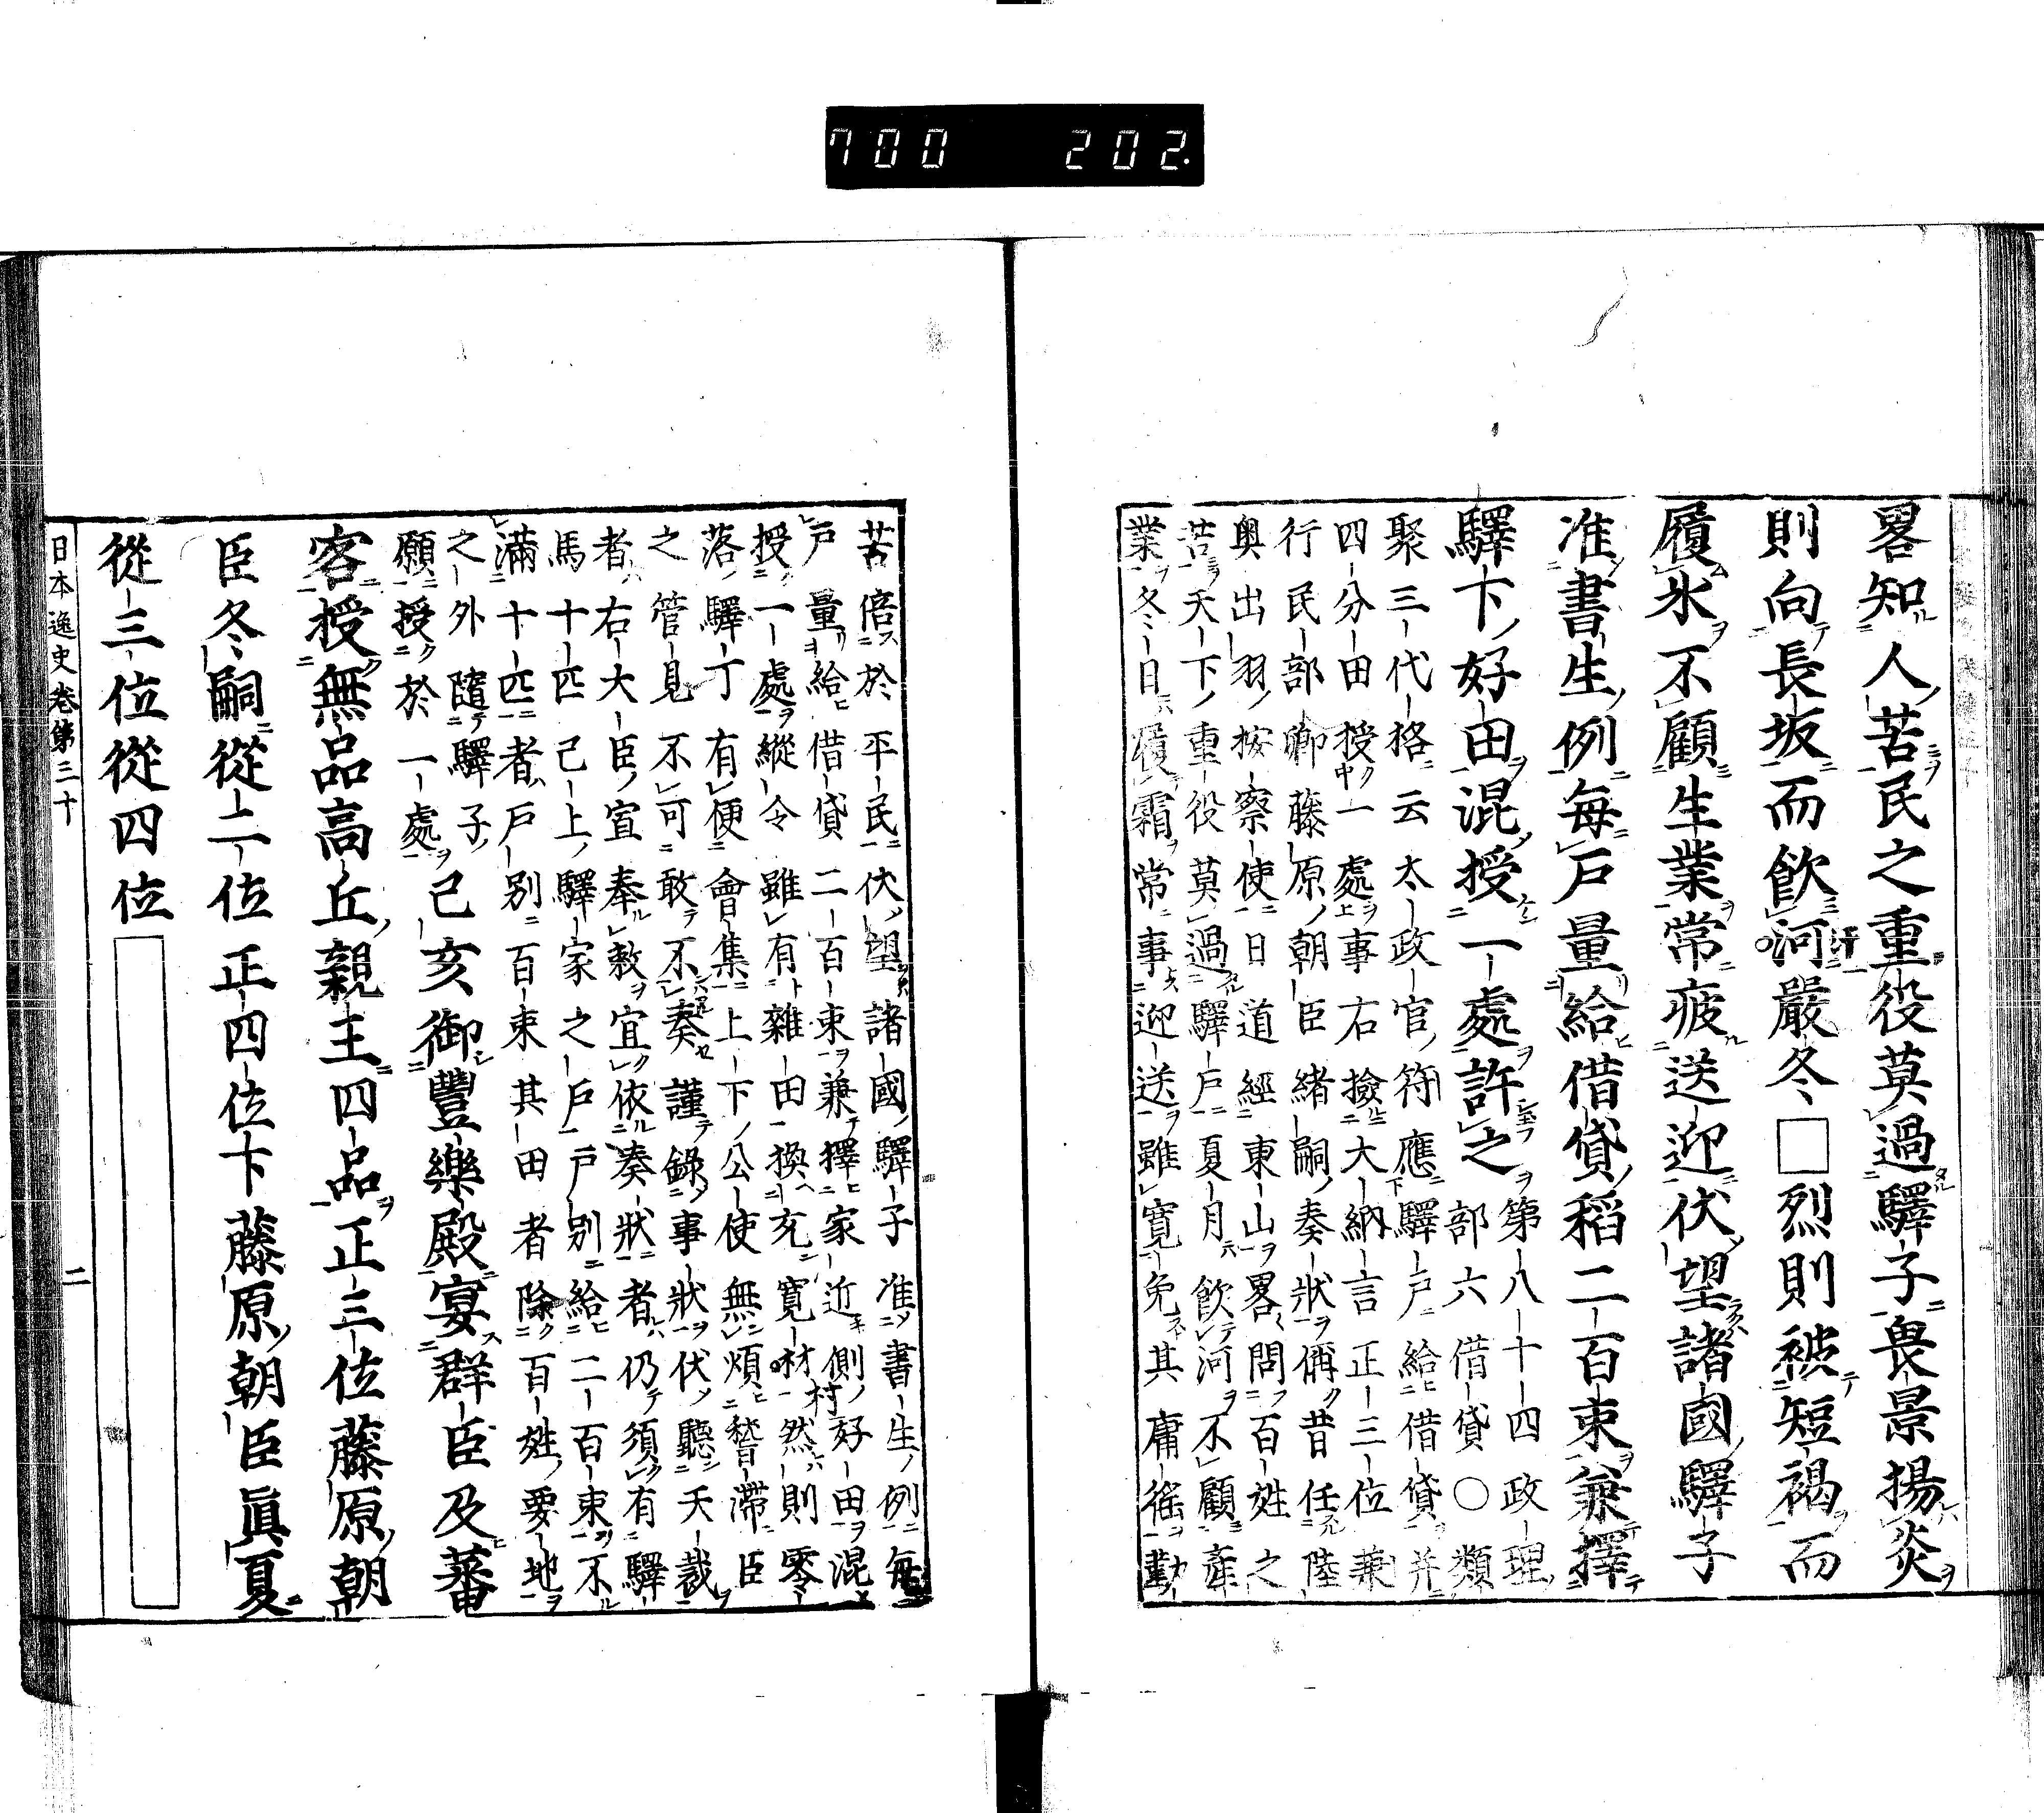 700 202.
畧知人苦民之重役莫過驛子畏景揚炎
則向長坂而飲河嚴冬□烈則被短褐而
履氷不顧生業常疲送迎伏望諸國驛子
准書生例每戸量給借貸稻二百束兼擇
驛下好田混授一處許之第八十四政理
部六借貸○類
聚三代格云太政官符應驛戸給借貸并
四分田授一處事右撿大納言正三位兼
行民部卿藤原朝臣緒嗣奏狀偁昔任陸
奥出羽按察使日道經東山畧問百姓之
苦天下重役莫過驛戸夏月飲河不顧產
業冬日履霜常事迎送雖寛免其庸徭勤
苦倍於平民伏望諸國驛子准書生例每
戸量給借貸二百束兼擇家近側好田混
授一處縱令雖有雜田換充寛材然則零
落驛丁有便會集上下公使無煩稽滯臣
之管見不可敢不奏謹錄事狀伏聽天裁
者右大臣宣奉敕宜依奏狀者仍須有驛
馬十匹已上驛家之戸戸別給二百束不
滿十匹者戸別百束其田者除百姓要地
之外隨驛子
願授於一處己亥御豐樂殿宴群臣及蕃
客授無品高丘親王四品正三位藤原朝
臣冬嗣從二位正四位下藤原朝臣眞夏
從三位從四位
日本逸史卷第三十 二